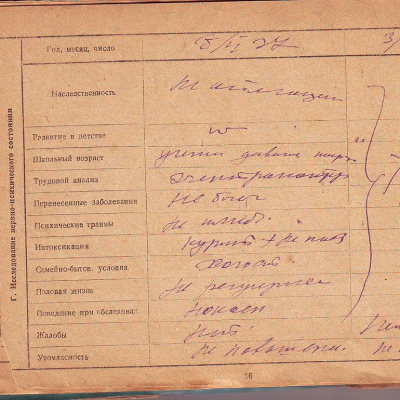 Г. Исследование нервно-психического состояния
Год, месяц, число
Наследственность не
Развитие в детстве
Школьный возраст
Трудовой анализ электромонтер
Перенесенные заболевания не болел
Психические травмы не имел
Интоксикация курит + не пьет
Семейно-бытов. условия холост
Половая жизнь не регулярная
Поведение при обследован. спокоен
Жалобы нет
Утомляемость не повышена.
26